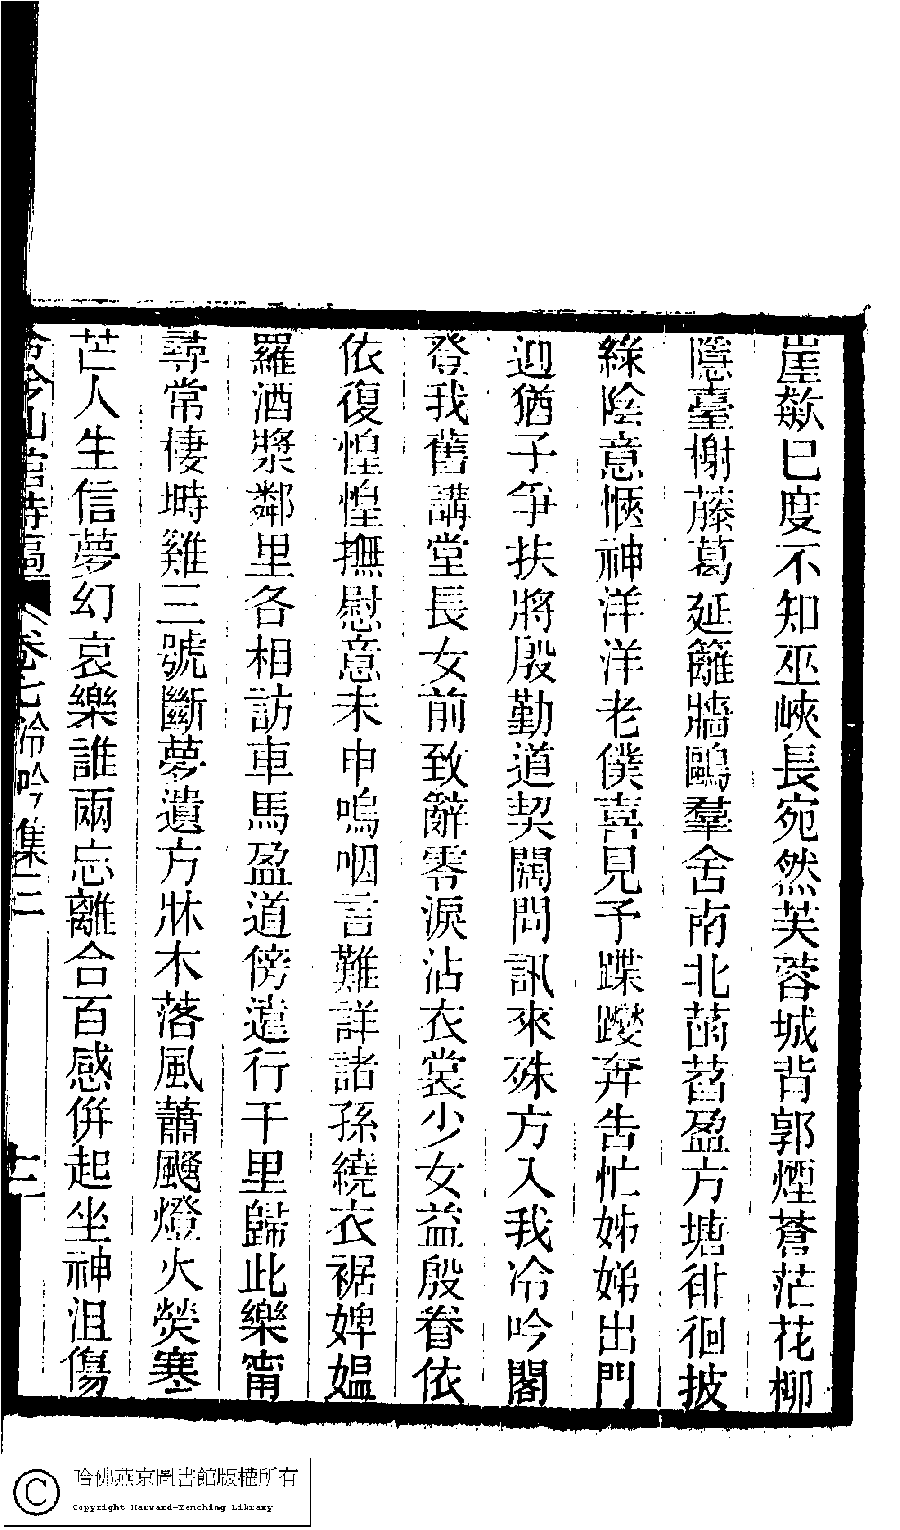 崖歘已度不知巫峽長宛然芙蓉城背郭煙蒼茫花柳
隱臺榭藤葛延籬牆鷗羣舍南北菡萏盈方塘徘徊披
綠陰意愜神洋洋老僕喜見予蹀躞奔告忙姊娣出門
迎猶子爭扶將殷勤道契闊問訊來殊方入我冷吟閣
登我舊講堂長女前致辭零淚沾衣裳少女益殷眷依
依復惶惶撫慰意未申嗚咽言難詳諸孫繞衣裾婢媼
羅酒漿鄰里各相訪車馬盈道傍遠行千里歸此樂甯
尋常棲塒雞三號斷夢遺方牀木落風蕭颼燈火熒寒
芒人生信夢幻哀樂誰兩忘離合百感併起坐神沮傷
冷吟仙館詩槀 卷七冷吟集三 十二
哈佛燕京圖書館版權所有
Copyright Harvard-Yenching Library